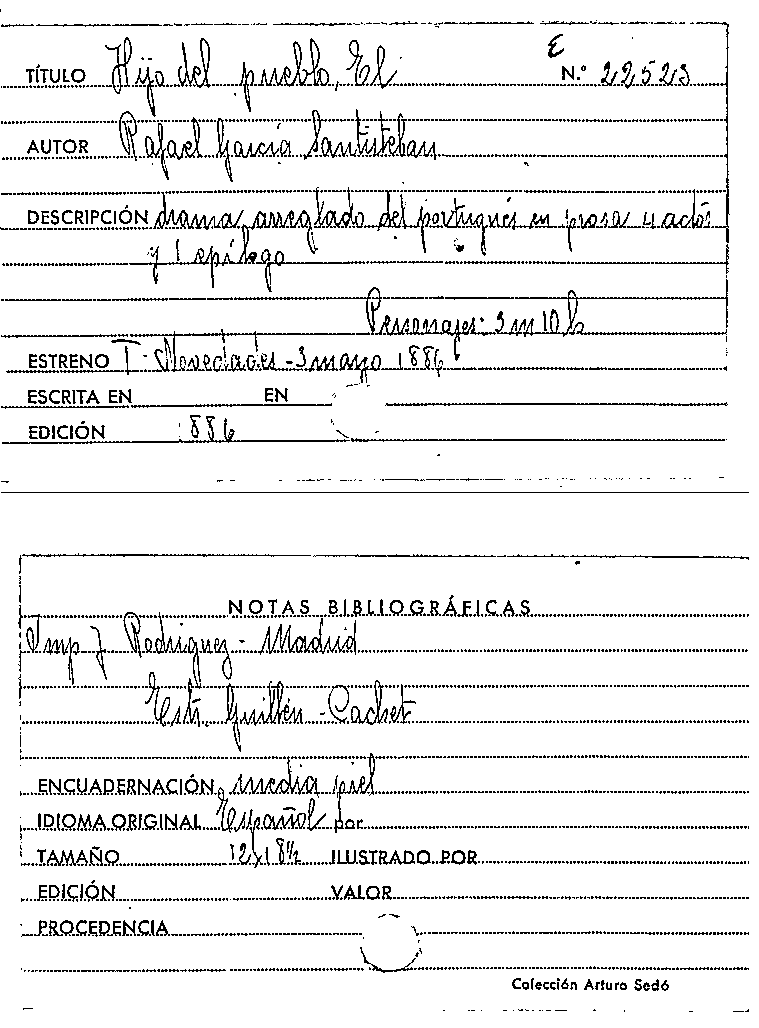 E
TÍTULO Hijo del pueblo, El N.º 22523
AUTOR Rafael García Santisteban
DESCRIPCIÓN drama arreglado del portugués en prosa 4 actos
y 1 epílogo
Personajes: 3 m 10 h
ESTRENO T. Novedades - 3 mayo 1886
ESCRITA EN EN
EDICIÓN 1886
NOTAS BIBLIOGRÁFICAS
Imp J. Rodriguez - Madrid
Estr. Guillén - Cachet
ENCUADERNACIÓN media piel
IDIOMA ORIGINAL Español por
TAMAÑO 12x18½ ILUSTRADO POR
EDICIÓN VALOR
PROCEDENCIA
Colección Arturo Sedó